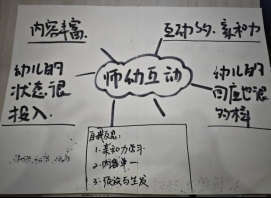 内容丰富
互动的.亲和力
幼儿的
状态很
投入.
师幼互动
幼儿的
回应也很
的棒
自我反思:
1.亲和力学习
2.内容单一
3.预设与生发